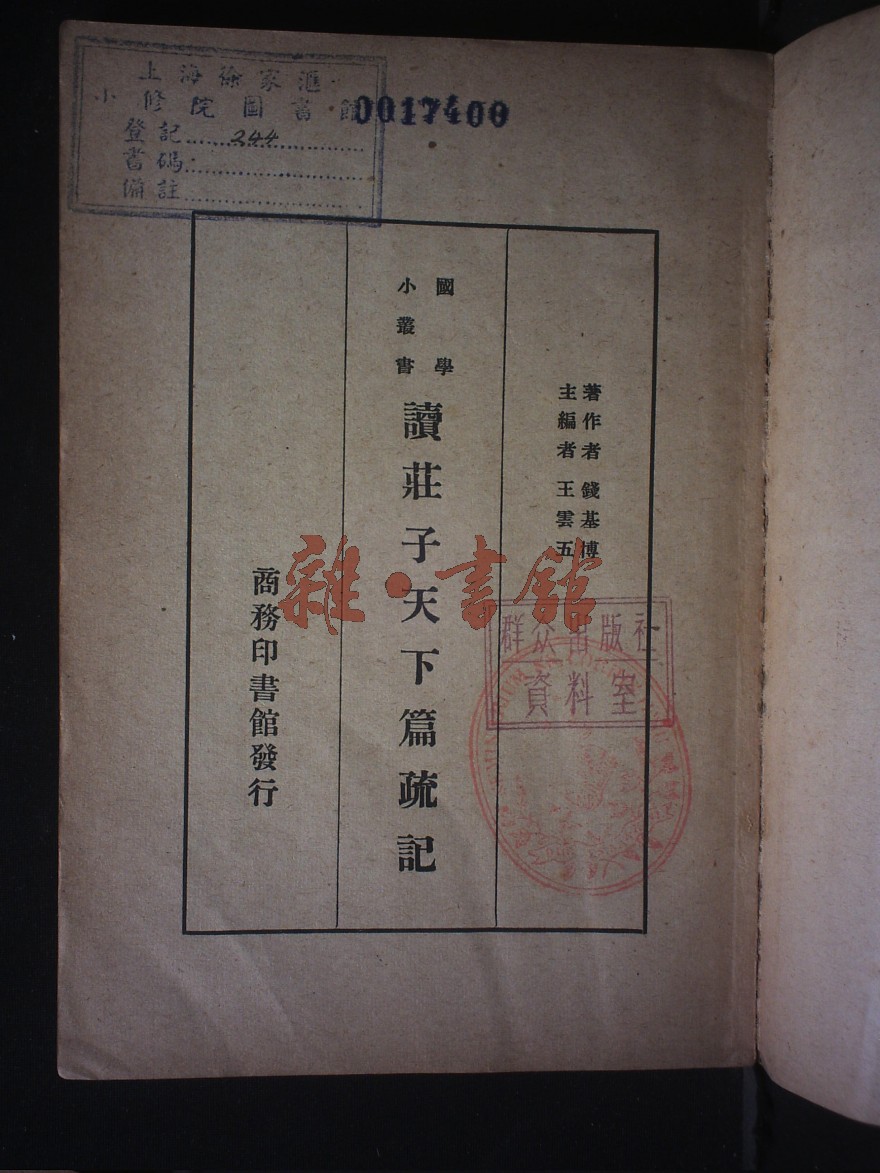 上海徐家滙
小修院圖書館
登記 244
書碼
備註
0017400
著作者 錢基博
主編者 王雲五
國學
小叢書
讀莊子天下篇疏記
商務印書館發行
雜·書館
群众出版社
資料室